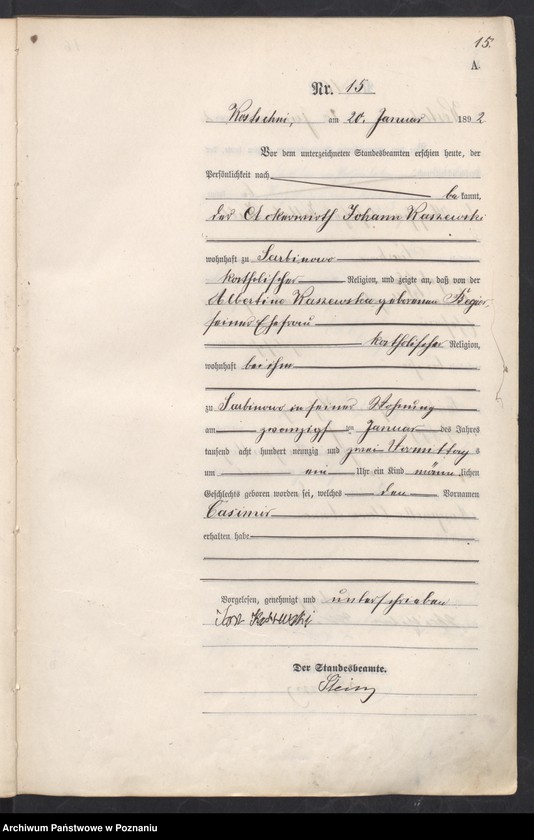 15.
A.
Nr. 15
am 20. Januar 1892
Vor dem unterzeichneten Standesbeamten erschien heute, der
Persönlichkeit nach
bekannt,
der Ackerwirth Johann Kaszewski
wohnhaft zu Sarbinowo
katholischer Religion, und zeigte an, daß von der
Albertine Kaszewska geborenen
seiner Ehefrau
katholischer Religion,
wohnhaft bei ihm
zu Sarbinowo in seiner Wohnung
am zwanzigsten Januar des Jahres
tausend acht hundert neunzig und zwei Vormittags
um ein Uhr ein Kind männlichen
Geschlechts geboren worden sei, welches den Vornamen
Casimir
erhalten habe
Vorgelesen, genehmigt und unterschrieben
Der Standesbeamte.
Archiwum Państwowe w Poznaniu